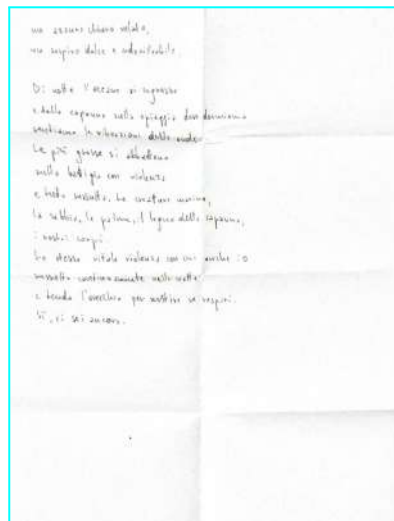 uno azzurro chiaro velato,
uno respiro dolce e indomitabile.
Di notte l'oceano si ingrossa
e dalla capanna sulla spiaggia dove dormiamo
sentiamo le vibrazioni delle onde.
Le più grosse si abbattono
sulla battigia con violenza
e tutto sussulta. Le creature marine,
la sabbia, le palme, il legno della capanna,
i nostri corpi.
La stessa vitale violenza con cui anche io
sussulto continuamente nella notte
e tendo l'orecchio per sentire se respiri.
Sì, ci sei ancora.